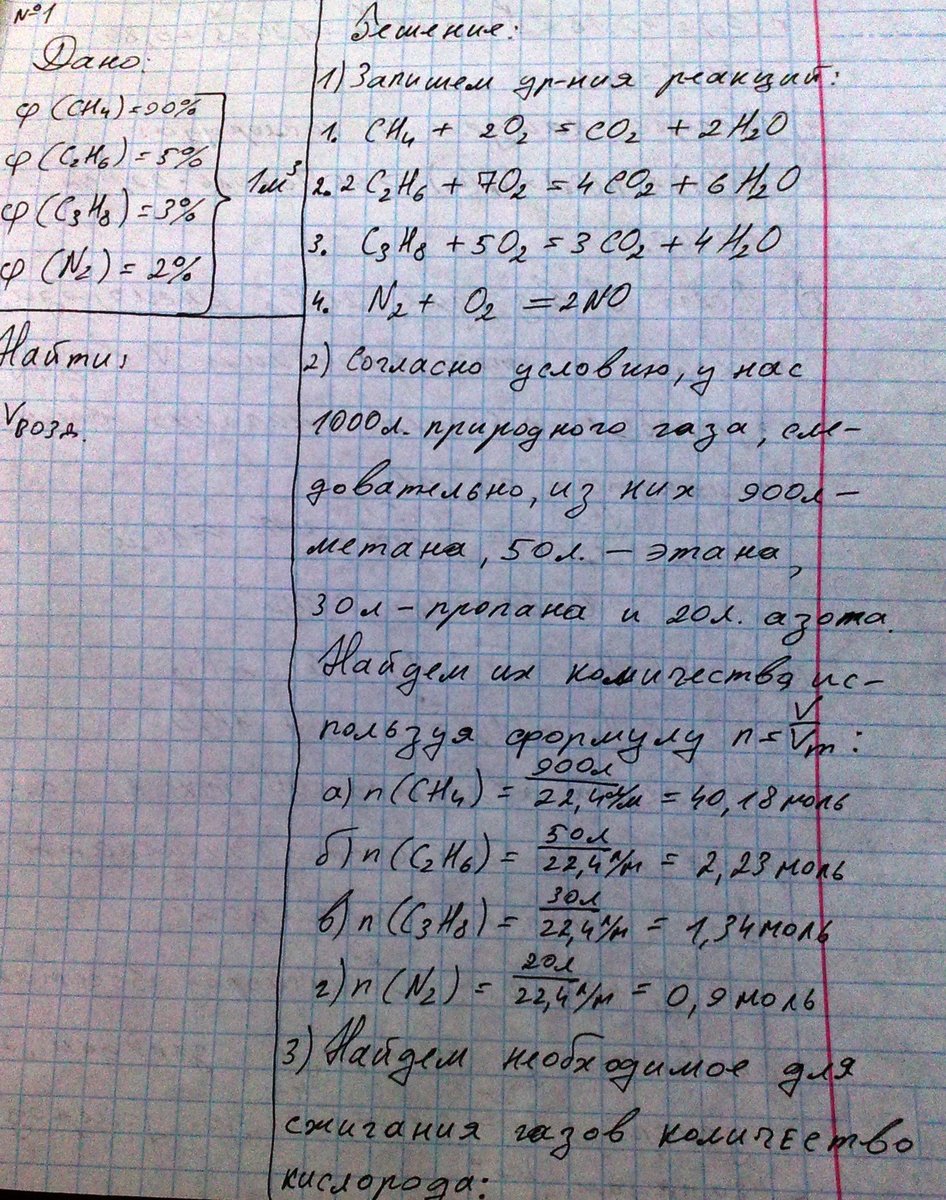 №1
Дано:
φ(CH₄)=90%
φ(C₂H₆)=5%
φ(C₃H₈)=3%
φ(N₂)=2%
1м³
Найти:
Vвозд.
Решение:
1) Запишем ур-ния реакций:
1. CH₄ + 2O₂ = CO₂ + 2H₂O
2. 2C₂H₆ + 7O₂ = 4CO₂ + 6H₂O
3. C₃H₈ + 5O₂ = 3CO₂ + 4H₂O
4. N₂ + O₂ = 2NO
2) Согласно условию, у нас
1000л. природного газа, сле-
довательно, из них 900л –
метана, 50л. – этана,
30л – пропана и 20л. азота.
Найдем их количества, ис-
пользуя формулу n = V/Vm :
а) n(CH₄) = 900л/22,4л/м = 40,18 моль
б) n(C₂H₆) = 50л/22,4л/м = 2,23 моль
в) n(C₃H₈) = 30л/22,4л/м = 1,34 моль
г) n(N₂) = 20л/22,4л/м = 0,9 моль
3) Найдем необходимое для
сжигания газов количество
кислорода: